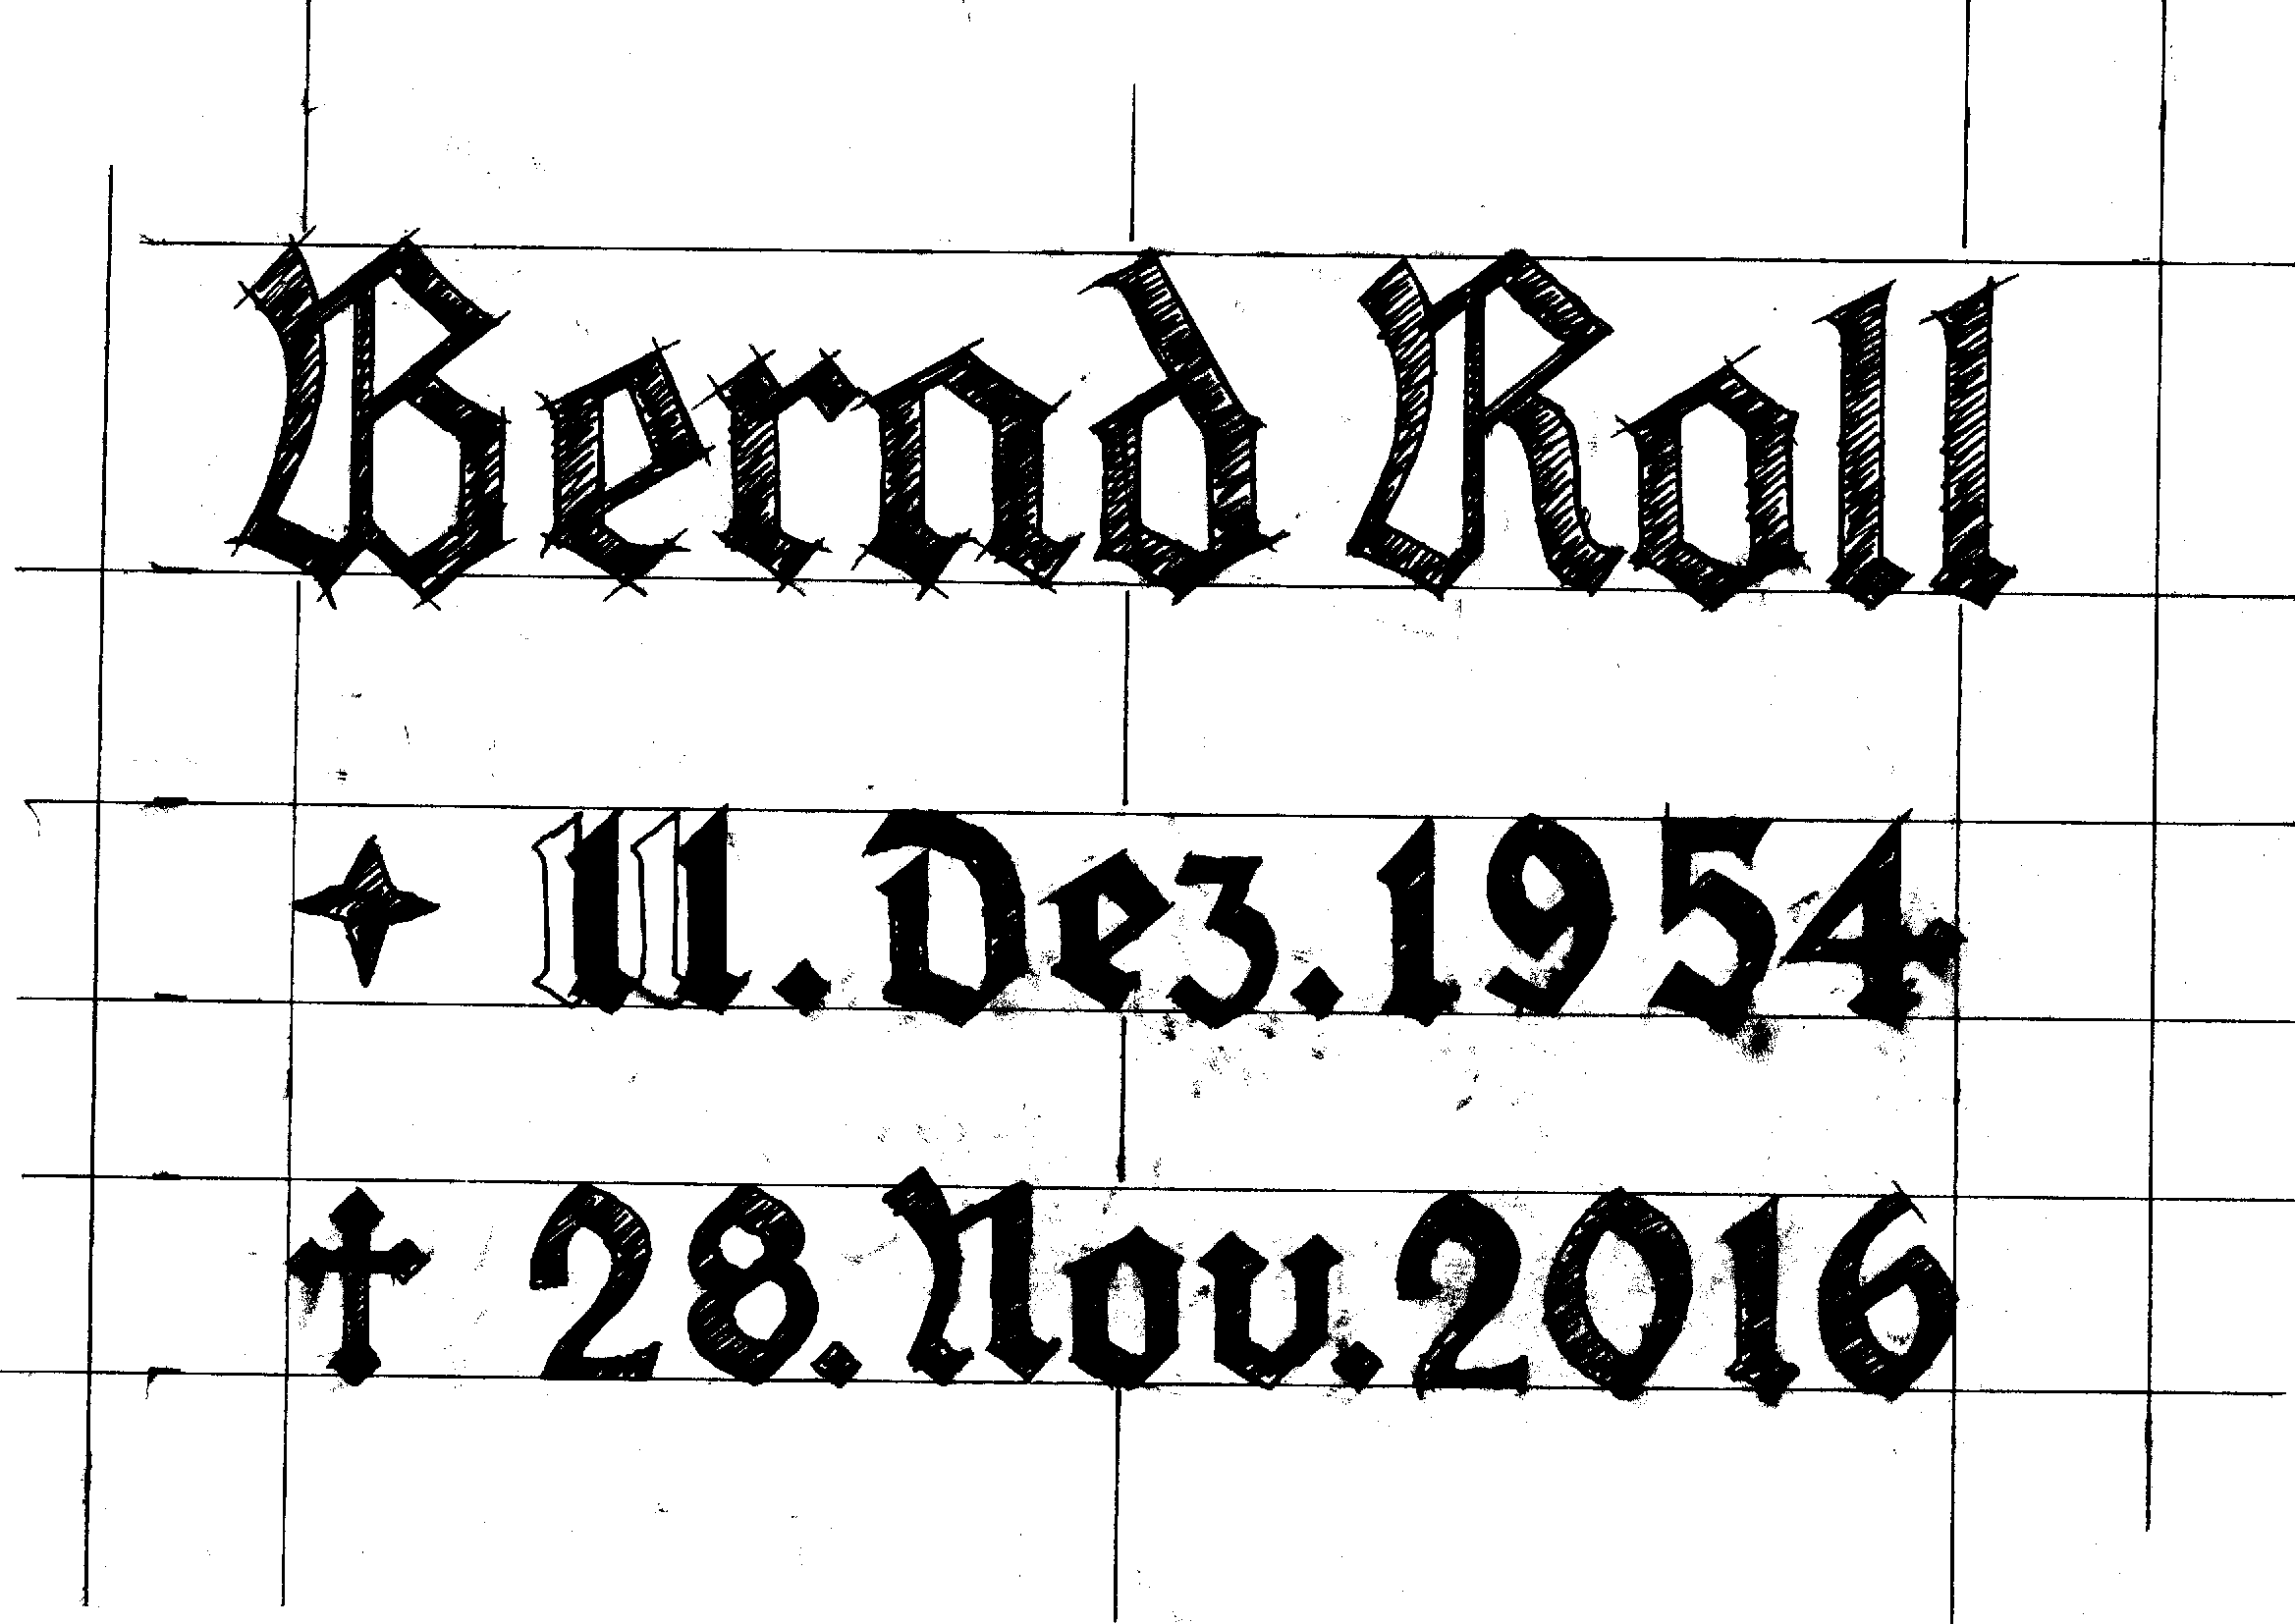 Bernd Roll
✦ 11. Dez. 1954
† 28. Nov. 2016